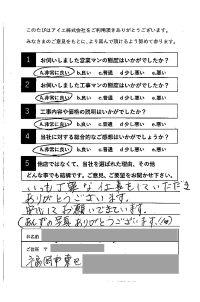 このたびはアイエ株式会社をご利用頂きありがとうございます。
みなさまのご意見をもとに、より高いて頂けるよう努めて参ります。
1 お伺いしました営業マンの態度はいかがでしたか？
A.非常に良い B.良い C.普通 d 少し悪い e.悪い
2 お伺いしました工事マンの態度はいかがでしたか？
A.非常に良い B.良い C.普通 d 少し悪い e.悪い
3 工事内容や価格の説明はいかがでしたか？
A.非常に良い B.良い C.普通 d 少し悪い e.悪い
4 当社に対する総合的なご感想はいかがでしょうか？
A.非常に良い B.良い C.普通 d 少し悪い e.悪い
5 他店ではなくて、当社を選ばれた理由、その他
どんな事でも結構です。ご意見、ご要望をお聞かせ下さい。
いつも丁寧な仕事をしていただき
ありがとうございます。
安心してお願いできています。
(あんずの写真ありがとうございます。
お名前
ご住所 〒
福岡市東区